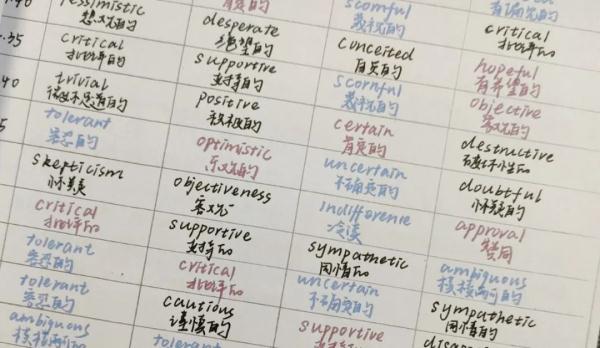 pessimistic desperate scornful critical
悲观的 绝望的 蔑视的 批评的
critical supportive conceited hopeful
批评的 支持的 自负的 有希望的
trivial positive scornful objective
微不足道的 积极的 蔑视的 客观的
tolerant optimistic certain destructive
容忍的 乐观的 肯定的 破坏性的
skepticism objectiveness uncertain doubtful
怀疑 客观 不确定的 怀疑的
critical supportive indifference approval
批评的 支持的 冷漠 赞同
tolerant critical sympathetic ambiguous
容忍的 批评的 同情的 模棱两可的
tolerant cautious uncertain sympathetic
容忍的 谨慎的 不确定的 同情的
ambiguous tolerant supportive
模棱两可的